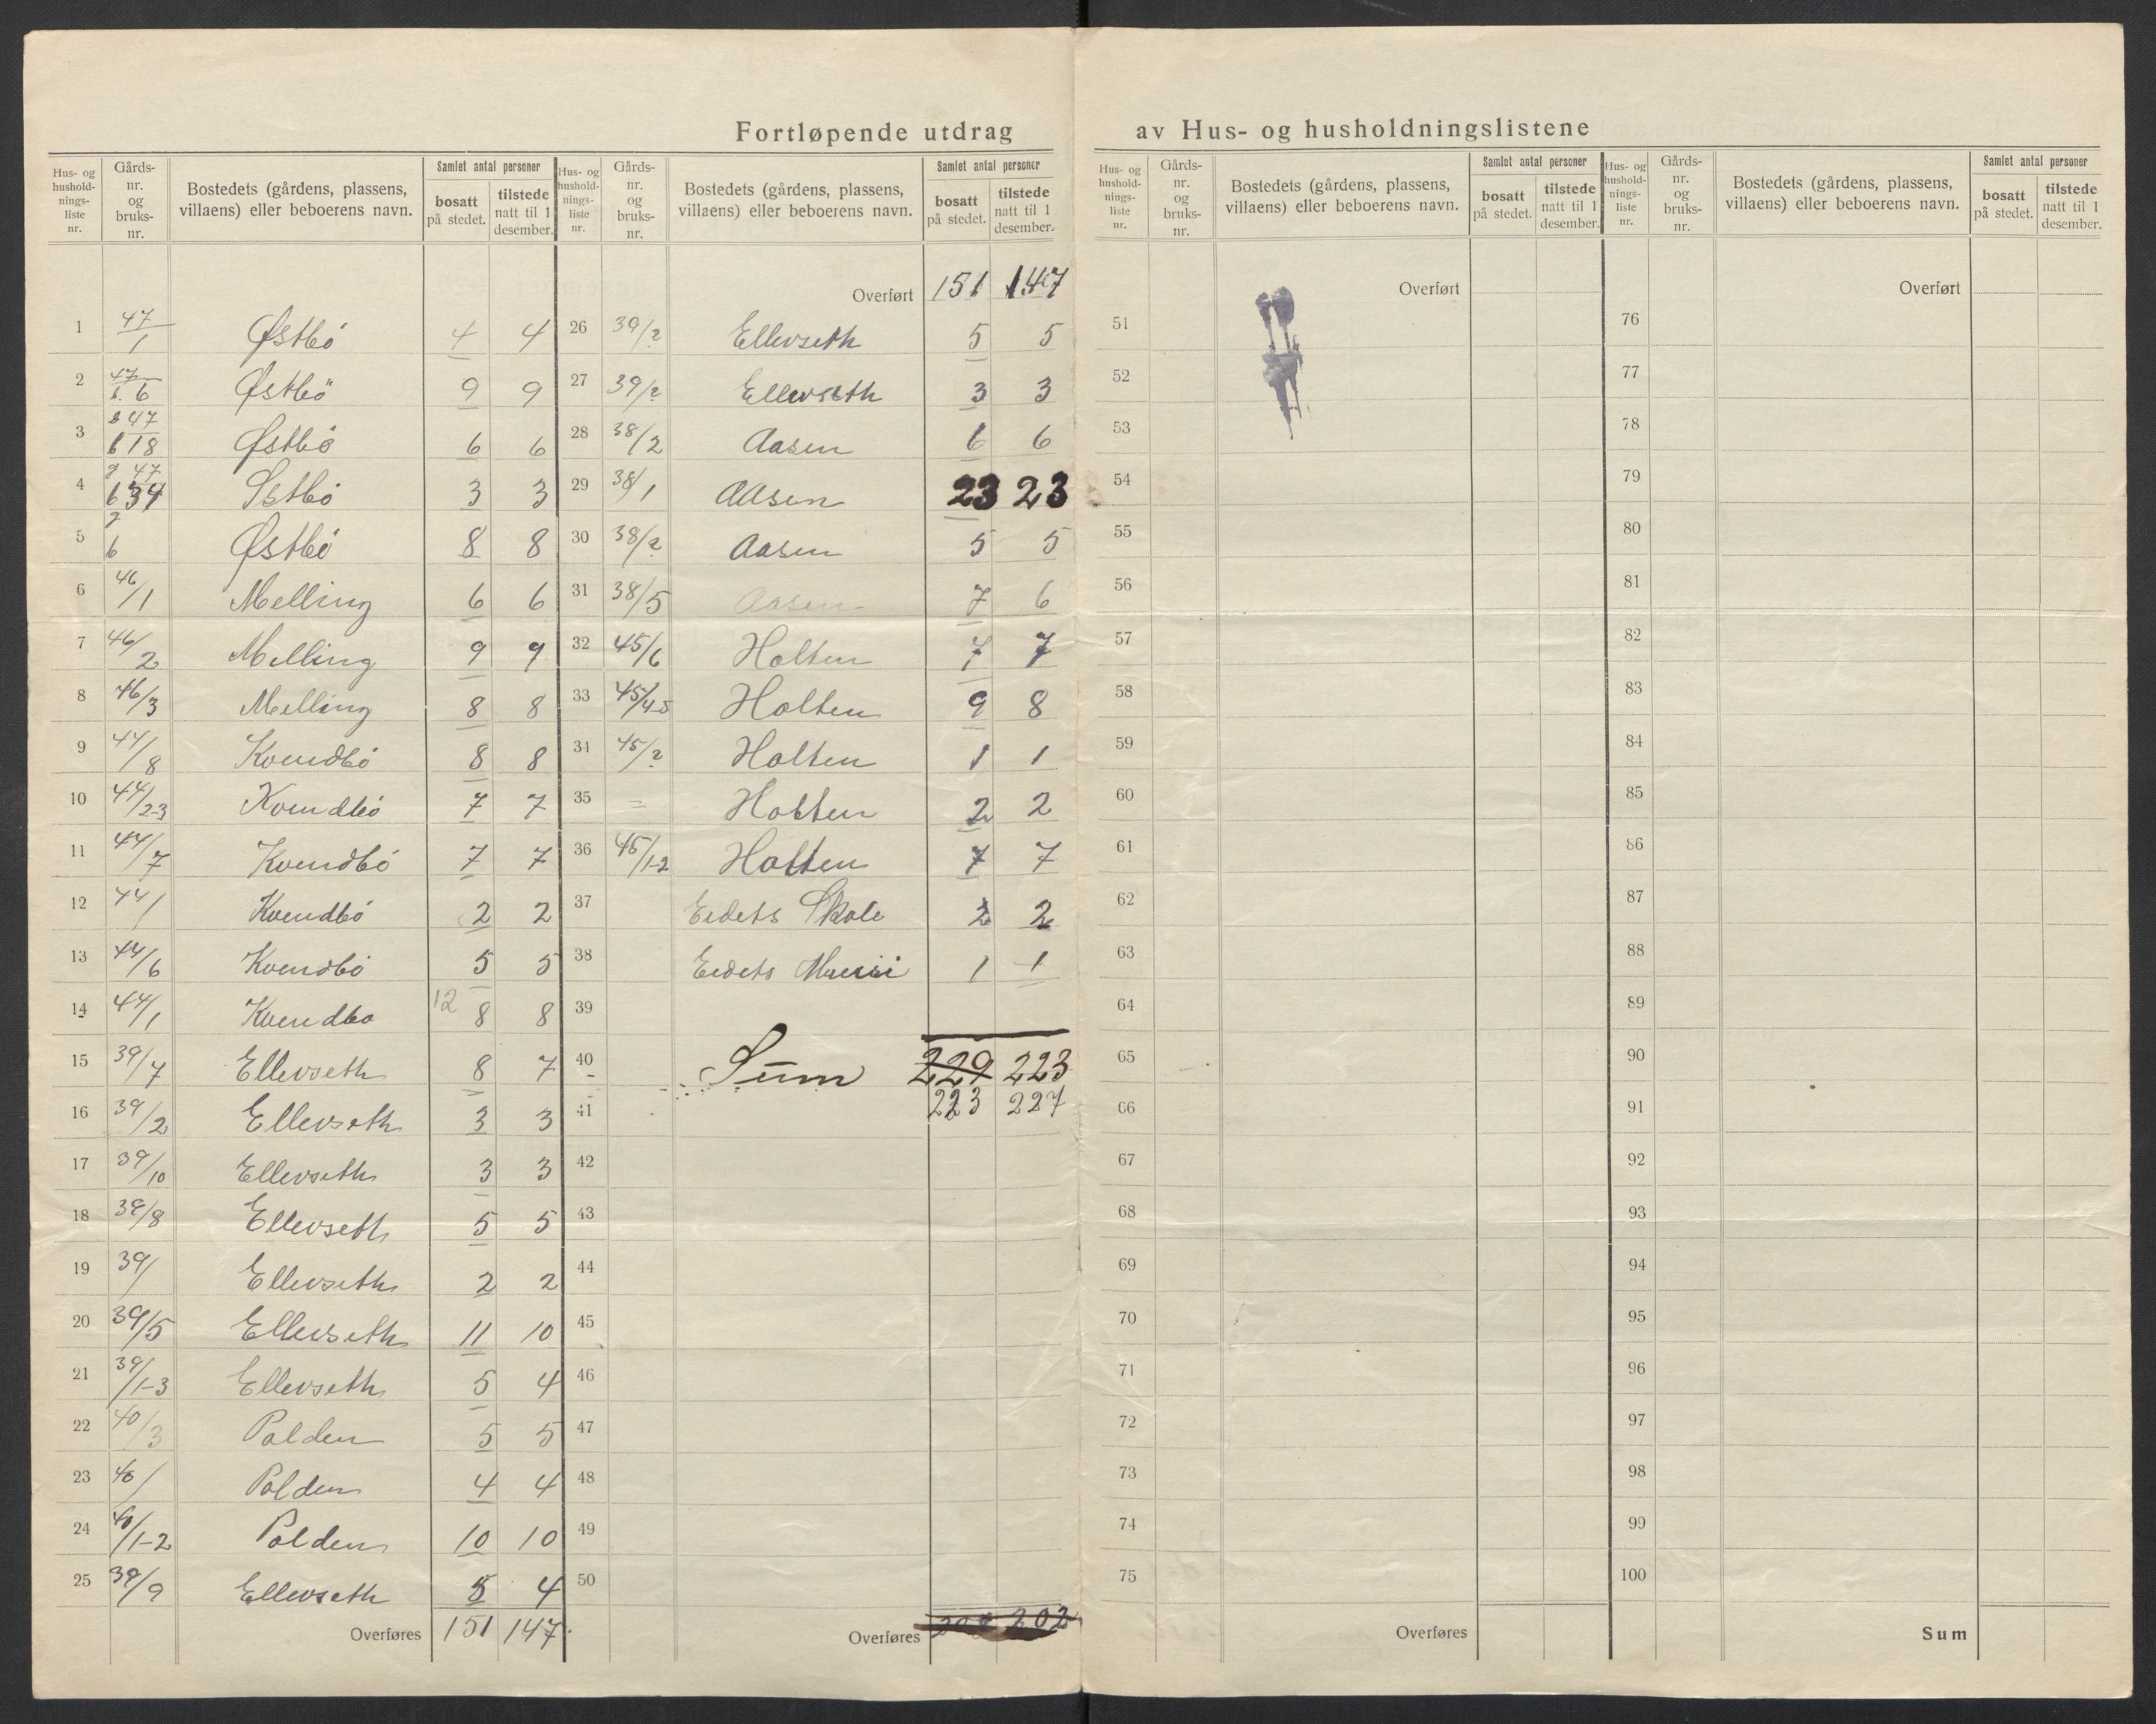 Fortløpende utdrag av Hus- og husholdningslistene
Hus- og hushold- nings- liste nr. Gårds- nr. og bruks- nr. Bostedets (gårdens, plassens, villaens) eller beboerens navn. Samlet antal personer bosatt på stedet. tilstede natt til 1 desember.
1 47/1 Østbö 4 4
2 47 b. 6 Østbö 9 9
3 g 47 b 18 Østbö 6 6
4 g 47 b 34 Østbö 3 3
5 g b Østbö 8 8
6 46/1 Melling 6 6
7 46/2 Melling 9 9
8 46/3 Melling 8 8
9 44/8 Kvendbö 8 8
10 44/2-3 Kvendbö 7 7
11 44/7 Kvendbö 7 7
12 44/ Kvendbö 2 2
13 44/6 Kvendbö 5 5
14 44/1 Kvendbo 12 8 8
15 39/7 Ellevseth 8 7
16 39/2 Ellevseth 3 3
17 39/10 Ellevseth 3 3
18 39/8 Ellevseth 5 5
19 39/ Ellevseth 2 2
20 39/5 Ellevseth 11 10
21 39/1-3 Ellevseth 5 4
22 40/3 Polden 5 5
23 40/ Polden 4 4
24 40/1-2 Polden 10 10
25 39/9 Ellevseth 5 4
Overføres 151 147
Hus- og hushold- nings- liste nr. Gårds- nr. og bruks- nr. Bostedets (gårdens, plassens, villaens) eller beboerens navn. Samlet antal personer bosatt på stedet. tilstede natt til 1 desember.
Overført 151 147
26 39/2 Ellevseth 5 5
27 39/2 Ellevseth 3 3
28 38/2 Aasen 6 6
29 38/1 Aasen 23 23
30 38/2 Aasen 5 5
31 38/5 Aasen 7 6
32 45/6 Holten 7 7
33 45/4-5 Holten 9 8
34 45/2 Holten 1 1
35 = Holten 2 2
36 45/1-2 Holten 7 7
37 Eidets Skole 2 2
38 Eidets 1 1
39
40 Sum 229 223
41 223 227
42
43
44
45
46
47
48
49
50
Overføres 202
Hus- og hushold- nings- liste nr. Gårds- nr. og bruks- nr. Bostedets (gårdens, plassens, villaens) eller beboerens navn. Samlet antal personer bosatt på stedet. tilstede natt til 1 desember.
Overført
51
52
53
54
55
56
57
58
59
60
61
62
63
64
65
66
67
68
69
70
71
72
73
74
75
Overføres
Hus- og hushold- nings- liste nr. Gårds- nr. og bruks- nr. Bostedets (gårdens, plassens, villaens) eller beboerens navn. Samlet antal personer bosatt på stedet. tilstede natt til 1 desember.
Overført
76
77
78
79
80
81
82
83
84
85
86
87
88
89
90
91
92
93
94
95
96
97
98
99
100
Sum